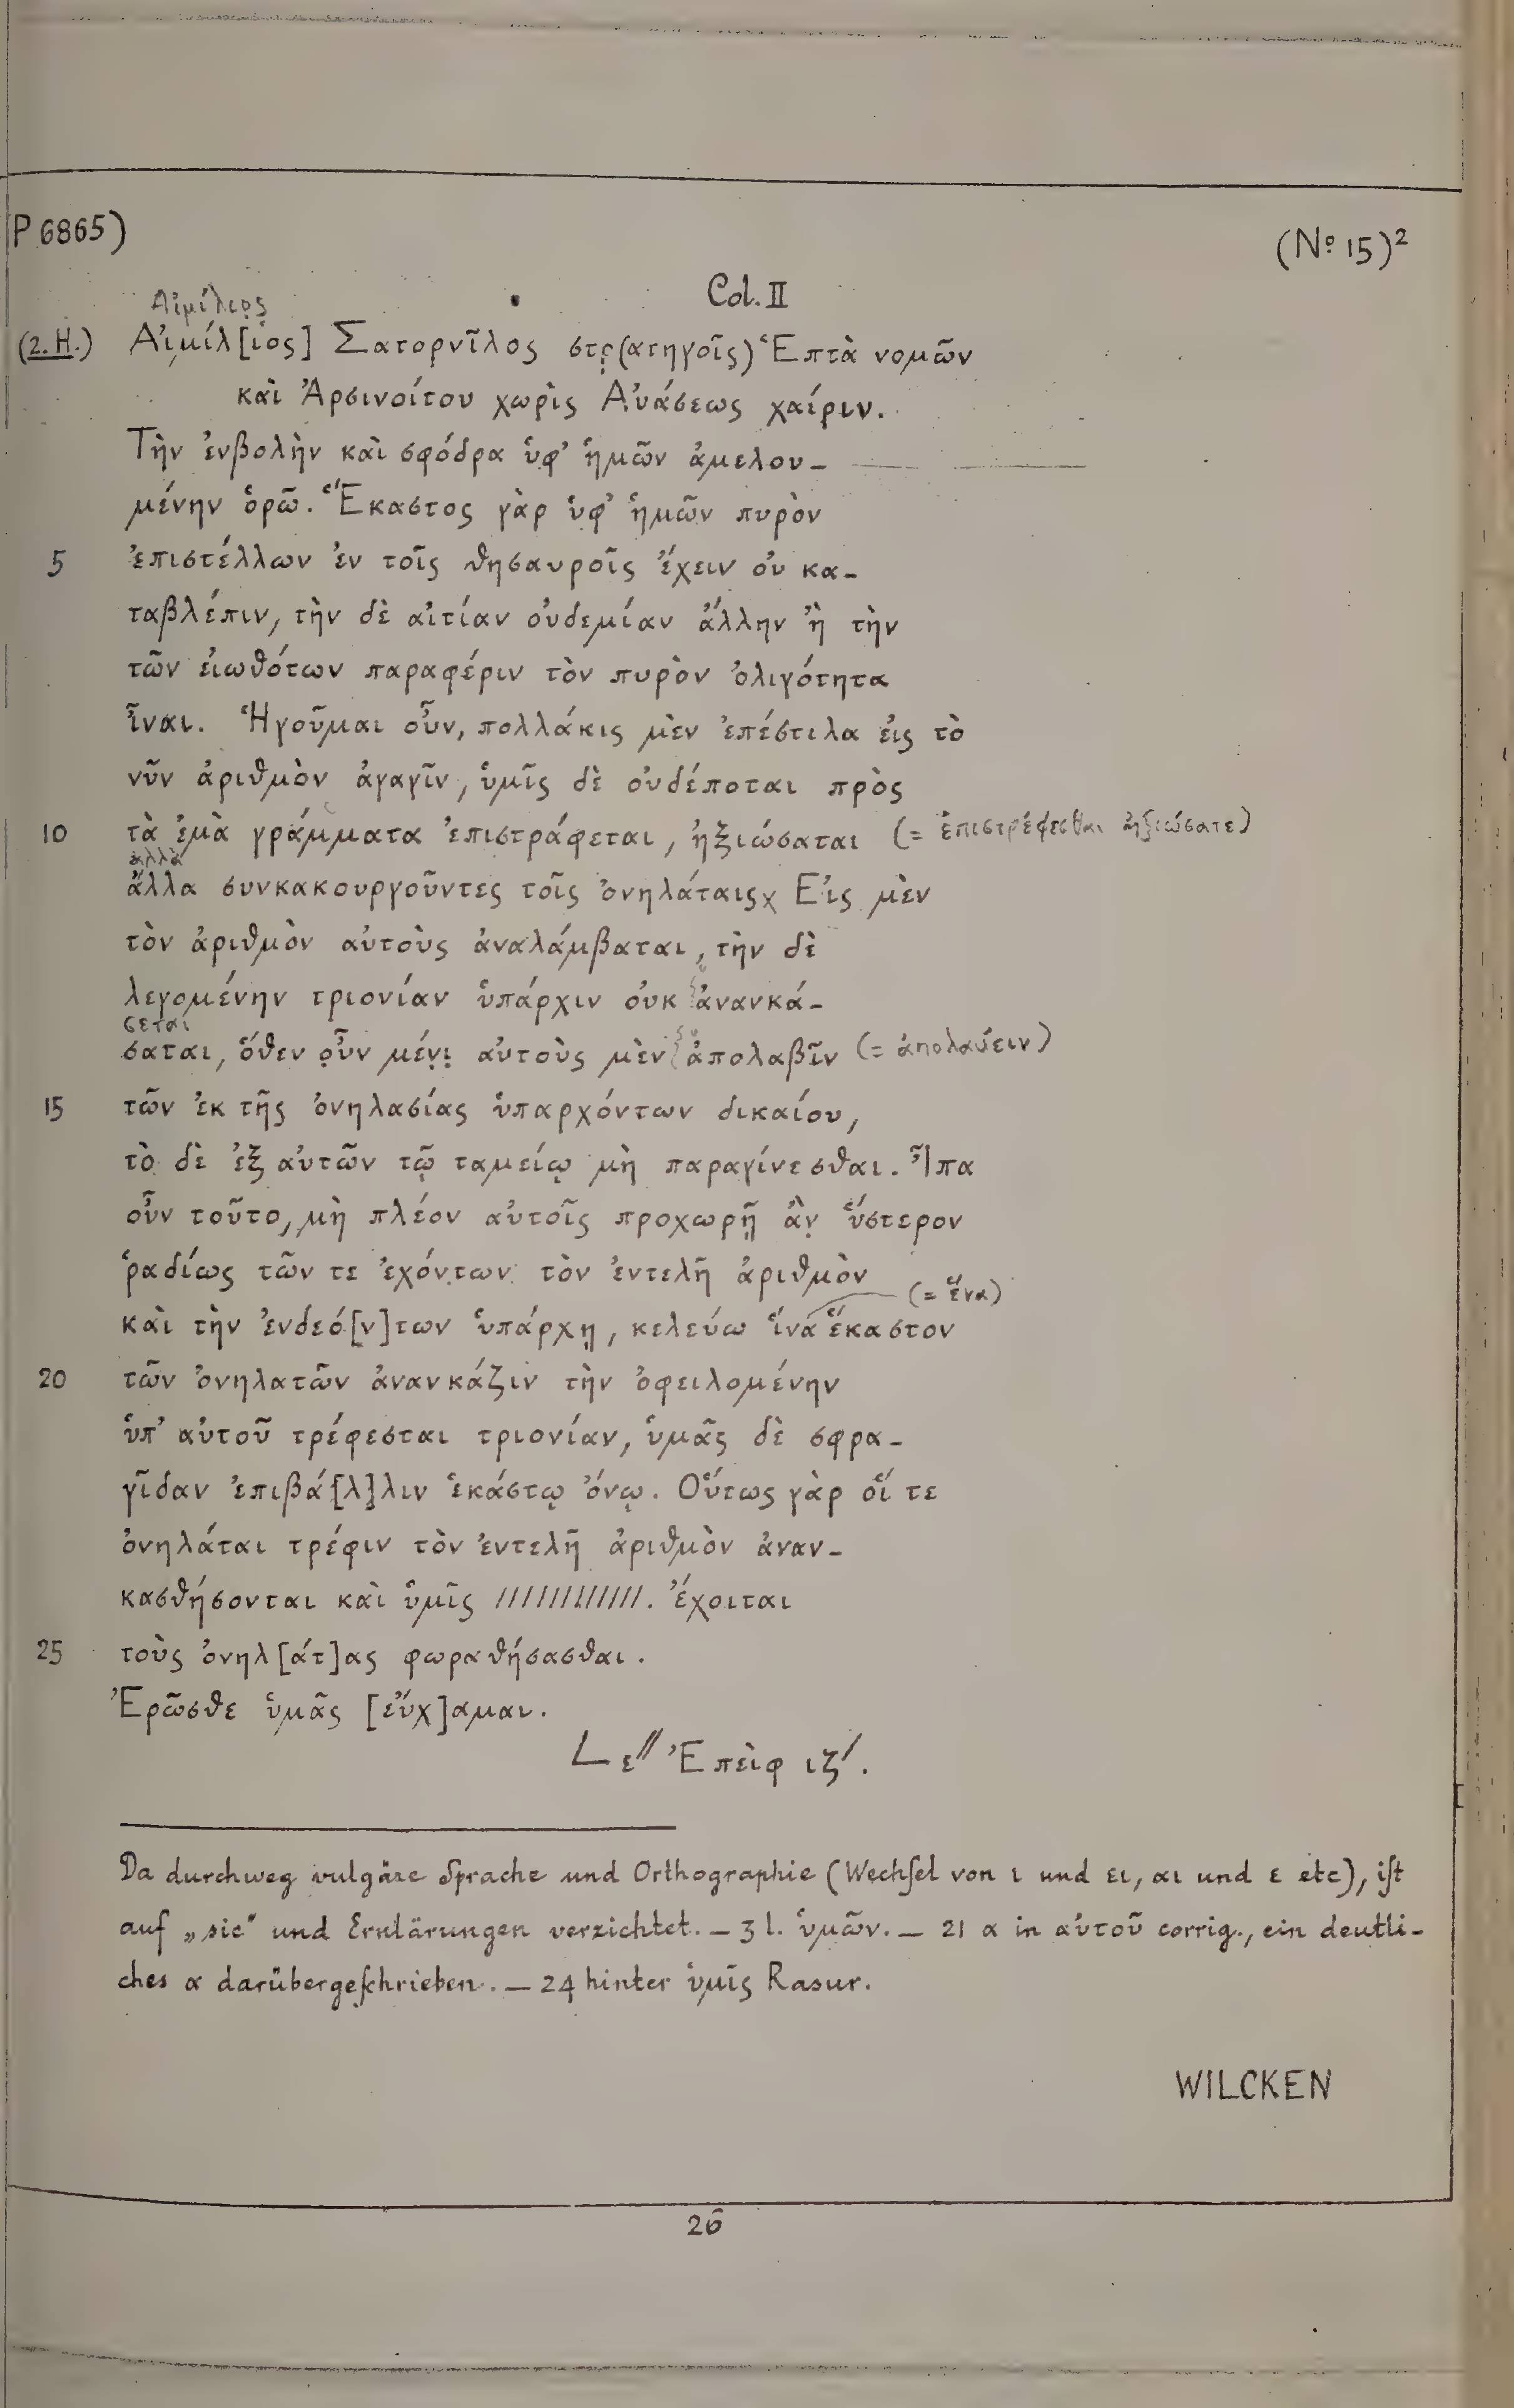 P 6865)
(No 15)2
Col. II
Αἰμίλιος
(2. H.) Αἰμίλ[ιος] Σατορνῖλος στρ(ατηγοῖς) Ἑπτὰ νομῶν
καὶ Ἀρσινοίτου χωρὶς Αὐάσεως χαίριν.
Τὴν ἐνβολὴν καὶ σφόδρα ὑφ' ἡμῶν ἀμελου-
μένην ὁρῶ. Ἕκαστος γὰρ ὑφ' ἡμῶν πυρὸν
5 ἐπιστέλλων ἐν τοῖς θησαυροῖς ἔχειν οὐ κα-
ταβλέπιν, τὴν δὲ αἰτίαν οὐδεμίαν ἄλλην ἢ τὴν
τῶν εἰωθότων παραφέριν τὸν πυρὸν ὀλιγότητα
ἶναι. Ἡγοῦμαι οὖν, πολλάκις μὲν ἐπέστιλα εἰς τὸ
νῦν ἀριθμὸν ἀγαγῖν, ὑμῖς δὲ οὐδέποται πρὸς
10 τὰ ἐμὰ γράμματα ἐπιστράφεται, ἠξιώσαται (= ἐπιστρέφεσθαι ἠξιώσατε)
ἀλλὰ
ἄλλα συνκακουργοῦντες τοῖς ὀνηλάταις χ Εἰς μὲν
τὸν ἀριθμὸν αὐτοὺς ἀναλάμβαται, τὴν δὲ
λεγομένην τριονίαν ὑπάρχιν οὐκ ἀνανκά-
σεται
σαται, ὅθεν οὖν μένι αὐτοὺς μὲν ἀπολαβῖν (= ἀπολαύειν)
15 τῶν ἐκ τῆς ὀνηλασίας ὑπαρχόντων δικαίου,
τὸ δὲ ἐξ αὐτῶν τῷ ταμείῳ μὴ παραγίνεσθαι. Ἶπα
οὖν τοῦτο, μὴ πλέον αὐτοῖς προχωρῇ ἂν ὕστερον
ῥαδίως τῶν τε ἐχόντων τὸν ἐντελῆ ἀριθμὸν
(= ἕνα)
καὶ τὴν ἐνδεό[ν]των ὑπάρχῃ, κελεύω ἵνα ἕκαστον
20 τῶν ὀνηλατῶν ἀνανκάζιν τὴν ὀφειλομένην
ὑπ' αὐτοῦ τρέφεσται τριονίαν, ὑμᾶς δὲ σφρα-
γῖδαν ἐπιβά[λ]λιν ἑκάστῳ ὄνῳ. Οὕτως γὰρ οἵ τε
ὀνηλάται τρέφιν τὸν ἐντελῆ ἀριθμὸν ἀναν-
κασθήσονται καὶ ὑμῖς /////////////. Ἔχοιται
25 τοὺς ὀνηλ[άτ]ας φωραθήσασθαι.
Ἐρῶσθε ὑμᾶς [εὔχ]αμαι.
L ε// Ἐπεὶφ ιζ'.
Da durchweg vulgäre Sprache und Orthographie (Wechſel von ι und ει, αι und ε etc), iſt
auf „sic“ und Erklärungen verzichtet. — 3 l. ὑμῶν. — 21 α in αὐτοῦ corrig., ein deutli-
ches α darübergeſchrieben. — 24 hinter ὑμῖς Rasur.
WILCKEN
26